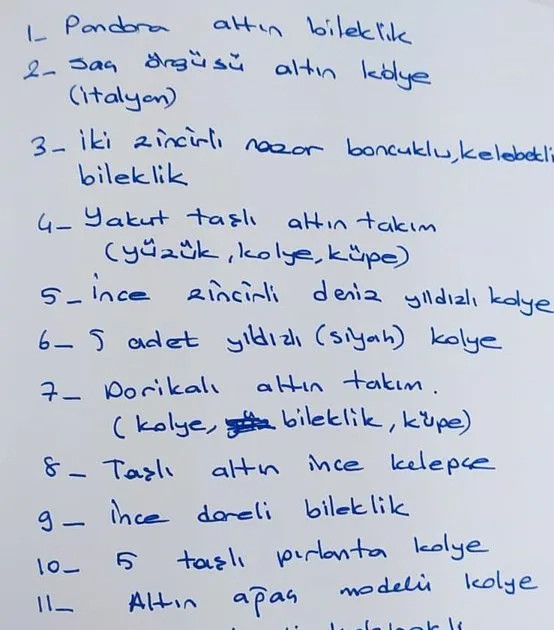 1_ Pandora altın bileklik
2_ Saç örgüsü altın kolye
(italyan)
3_ iki zincirli nazar boncuklu, kelebekli
bileklik
4_ Yakut taşlı altın takım
(yüzük, kolye, küpe)
5_ İnce zincirli deniz yıldızlı kolye
6_ 5 adet yıldızlı (siyah) kolye
7_ Dorikalı altın takım.
(kolye, bileklik, küpe)
8_ Taşlı altın ince kelepçe
9_ İnce doreli bileklik
10_ 5 taşlı pırlanta kolye
11_ Altın ağaç modelli kolye